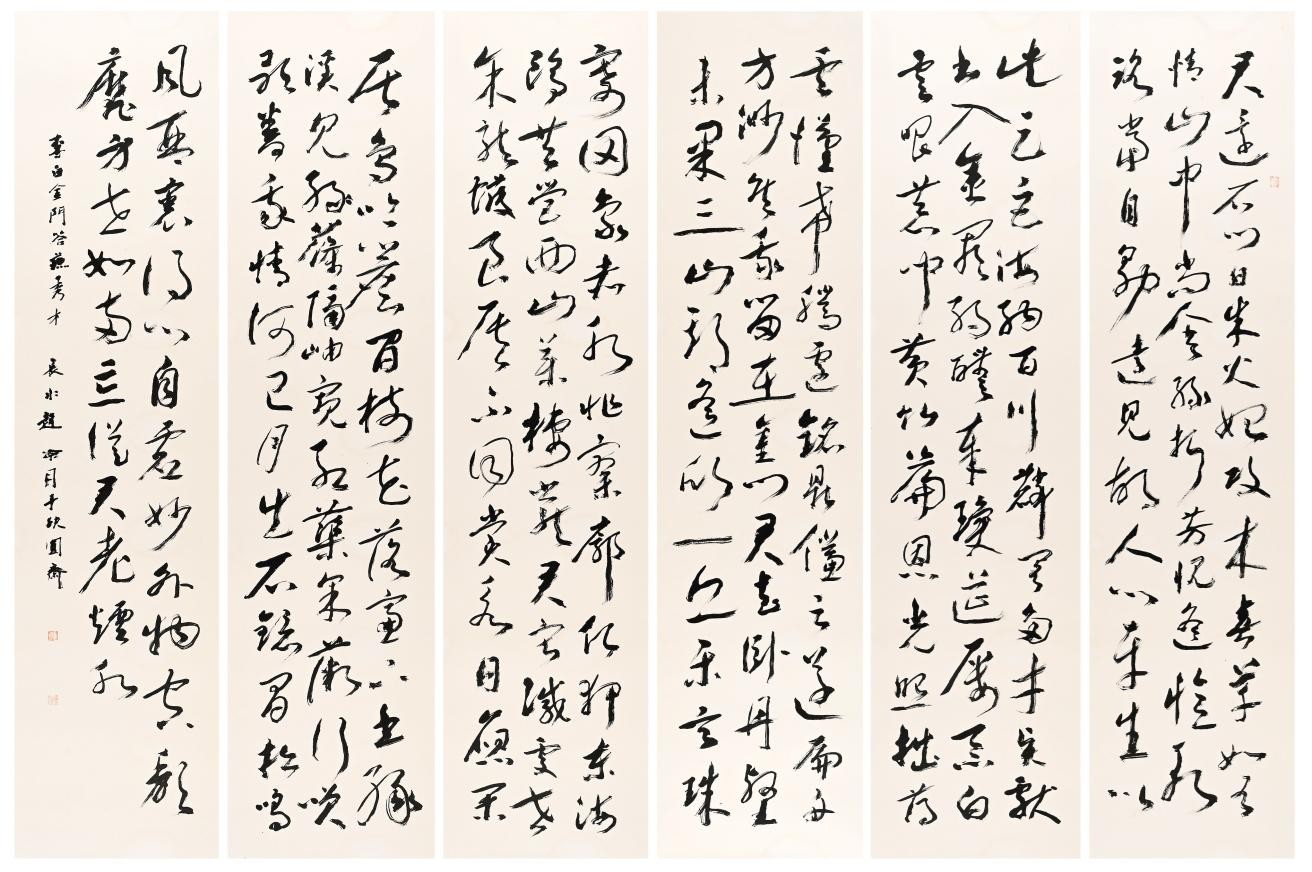 君還石門日朱火始改木春草如有
情山中尚含綠折芳愧遙憶永
路當自勖遠見故人心平生以
此足巨海納百川麟閣多才賢獻
書入金闕酌醴奉瓊筵屢忝白
雲唱恭聞黃竹篇恩光照拙薄
雲漢希騰遷銘鼎儻云遂扁舟
方渺然我留在金門君去臥丹壑
未果三山期遙欣一丘樂玄珠
寄罔象赤水非寥廓願狎東海
鷗共營西山藥棲巖君寂滅處世
余龍蠖良辰不同賞永日應閒
居鳥吟簷間樹花落窗下書緣
溪見綠篠隔岫窺紅蕖采薇行笑
歌眷我情何已月出石鏡間松鳴
風琴裏得心自虛妙外物空頹
靡身世如兩忘從君老煙水
李白金門答蘇秀才 長水趙冷月于缺圓齋